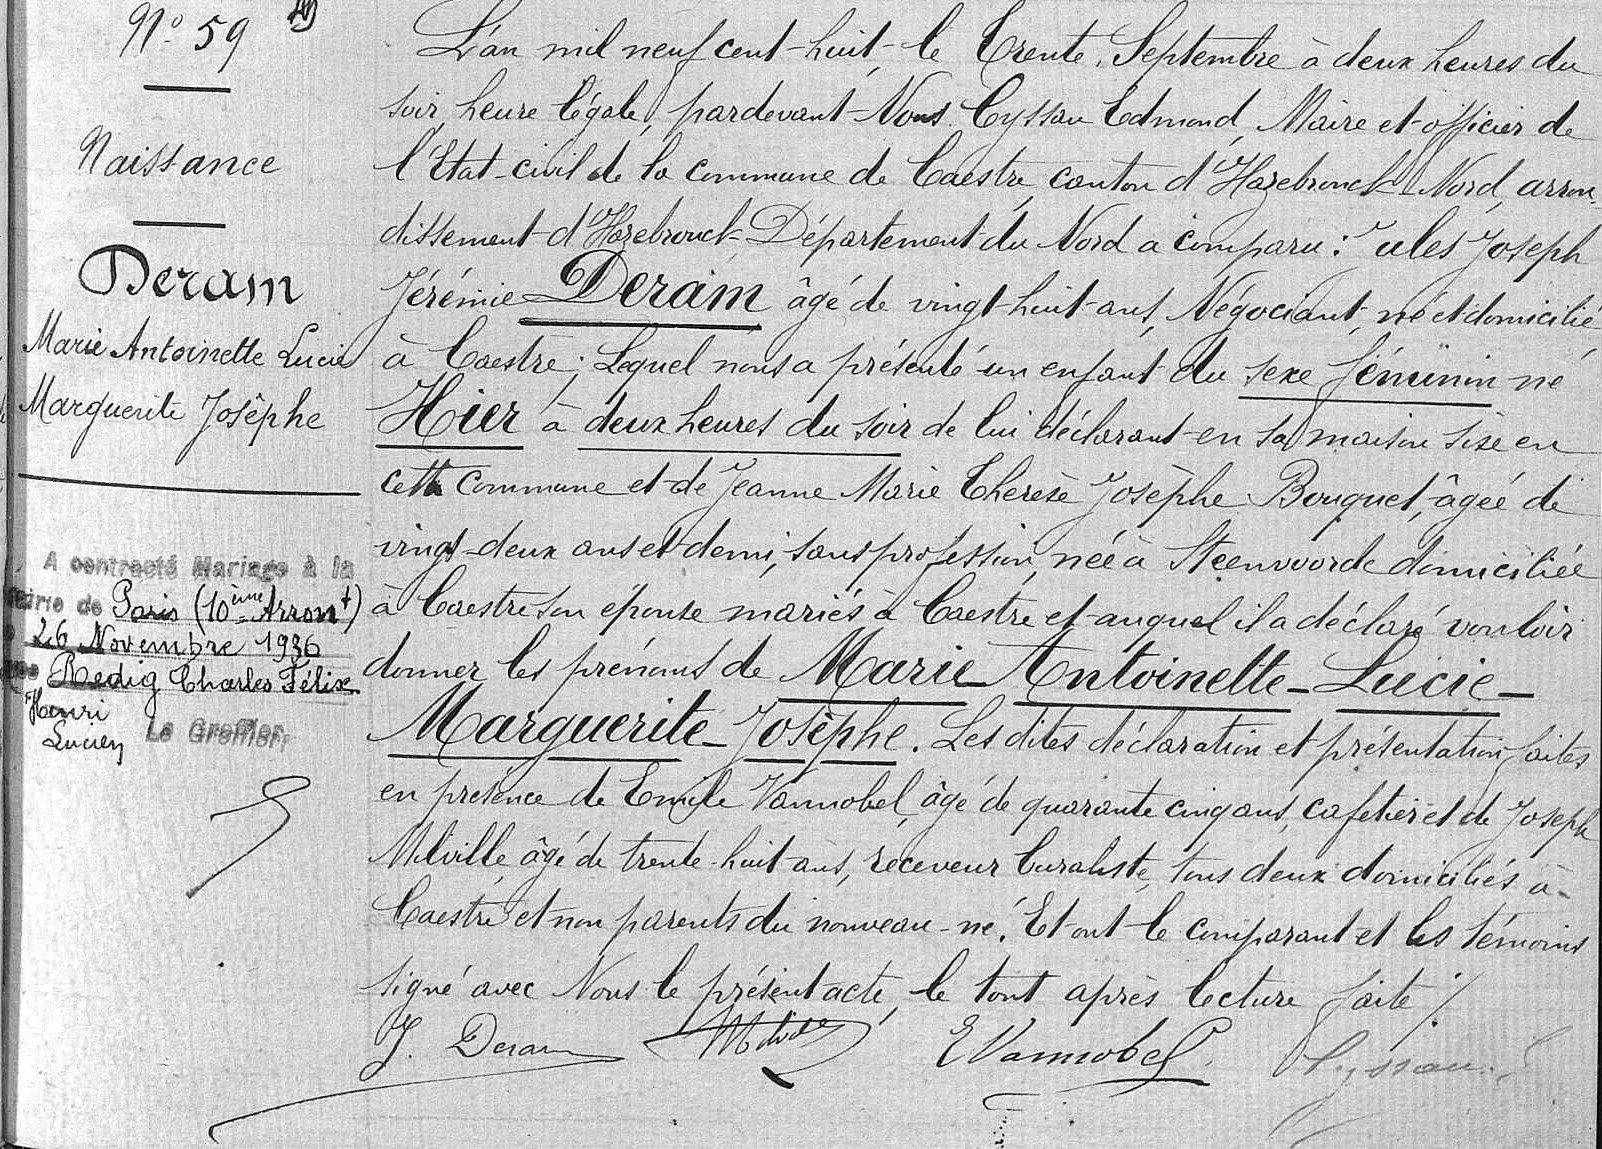 N° 59
Naissance
Deram
Marie Antoinette Lucie
Marguerite Josèphe
A contracté Mariage à la
Mairie de Paris (10ème Arront)
26 Novembre 1936
Redig Charles Félix
Henri
Lucien
Le Greffier,
L'an mil neuf cent-huit, le trente Septembre à deux heures du
soir, heure légale, pardevant Nous Cyssau Edmond, Maire et officier de
l'Etat-civil de la commune de Caestre, canton d'Hazebrouck Nord, arron-
dissement d'Hazebrouck Département du Nord a comparu : Jules Joseph
Jérémie Deram âgé de vingt-huit ans, Négociant, né et domicilié
à Caestre ; Lequel nous a présenté un enfant du sexe féminin né
Hier à deux heures du soir de lui déclarant en sa maison sise en
cette commune et de Jeanne Marie Therèse Josèphe Bouquet, âgée de
vingt-deux ans et demi, sans profession, née à Steenvoorde domiciliée
à Caestre son épouse mariés à Caestre et auquel il a déclaré vouloir
donner les prénoms de Marie Antoinette - Lucie -
Marguerite - Josèphe. Les dites déclaration et présentation faites
en présence de Emile Vannobel, âgé de quarante cinq ans, cafetier et de Joseph
Milville, âgé de trente-huit ans, receveur buraliste, tous deux domiciliés à
Caestre et non parents du nouveau-né. Et ont le comparant et les témoins
signé avec Nous le présent acte, le tout après lecture faite ./.
J. Deram
E Vannobel
Cyssau